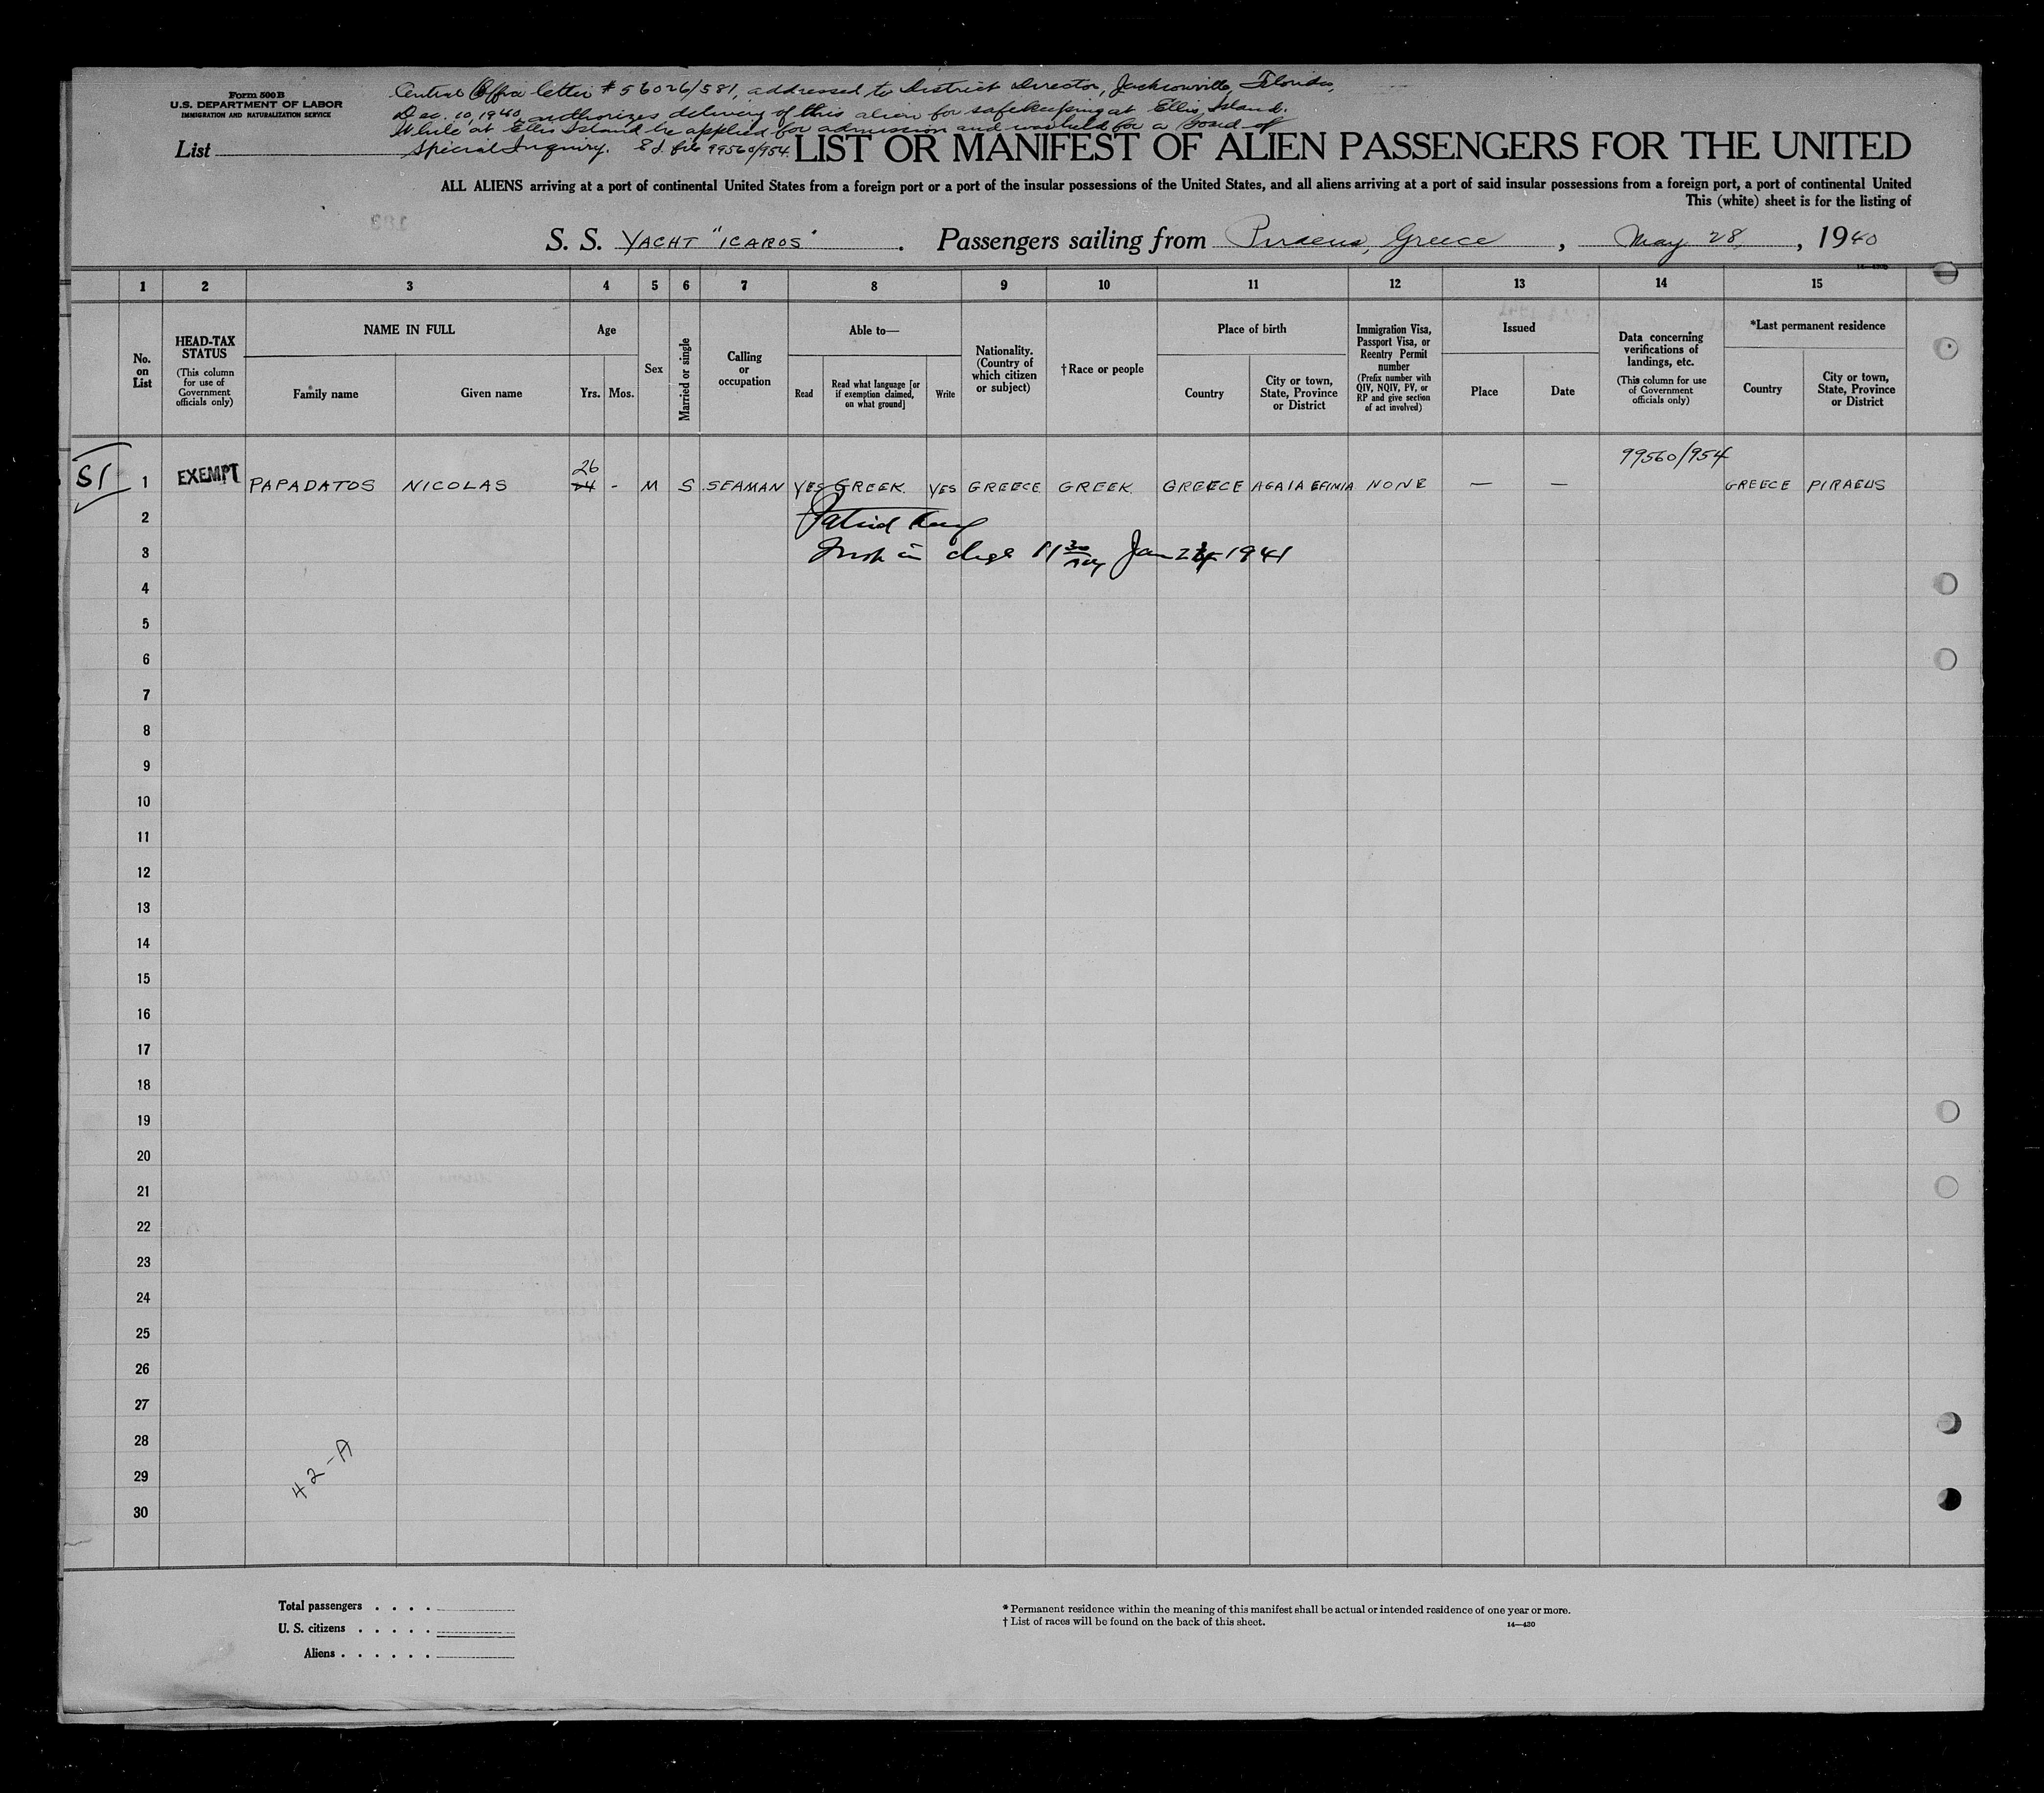 Form 500 B
U. S. DEPARTMENT OF LABOR
IMMIGRATION AND NATURALIZATION SERVICE
Central Office letter # 56026/581, addressed to District Director, Jacksonville, Florida,
Dec. 10, 1940, authorizes delivery of this alien for safekeeping at Ellis Island.
While at Ellis Island he applied for admission and was held for a Board of
Special Inquiry. E.I. file 99560/954
List
LIST OR MANIFEST OF ALIEN PASSENGERS FOR THE UNITED
ALL ALIENS arriving at a port of continental United States from a foreign port or a port of the insular possessions of the United States, and all aliens arriving at a port of said insular possessions from a foreign port, a port of continental United
This (white) sheet is for the listing of
S. S. YACHT "ICAROS". Passengers sailing from Piraeus, Greece, May 28, 1940
1 2 3 4 5 6 7 8 9 10 11 12 13 14 15
No. on List
HEAD-TAX STATUS
(This column for use of Government officials only)
NAME IN FULL
Family name
Given name
Age
Yrs. Mos.
Sex
Married or single
Calling or occupation
Able to—
Read
Read what language [or if exemption claimed, on what ground]
Write
Nationality. (Country of which citizen or subject)
†Race or people
Place of birth
Country
City or town, State, Province or District
Immigration Visa, Passport Visa, or Reentry Permit number
(Prefix number with QIV, NQIV, PV, or RP and give section of act involved)
Issued
Place
Date
Data concerning verifications of landings, etc.
(This column for use of Government officials only)
*Last permanent residence
Country
City or town, State, Province or District
26
99560/954
SI 1 EXEMPT PAPADATOS NICOLAS 24 - M S SEAMAN YES GREEK YES GREECE GREEK GREECE AGAIA EFIMIA NONE — — GREECE PIRAEUS
2
3 Insp in chge 11 30 Jan 24 1941
4
5
6
7
8
9
10
11
12
13
14
15
16
17
18
19
20
21
22
23
24
25
26
27
28
29
30
42-A
Total passengers . . . .
U. S. citizens . . . . .
Aliens . . . . . .
* Permanent residence within the meaning of this manifest shall be actual or intended residence of one year or more.
† List of races will be found on the back of this sheet.
14—430